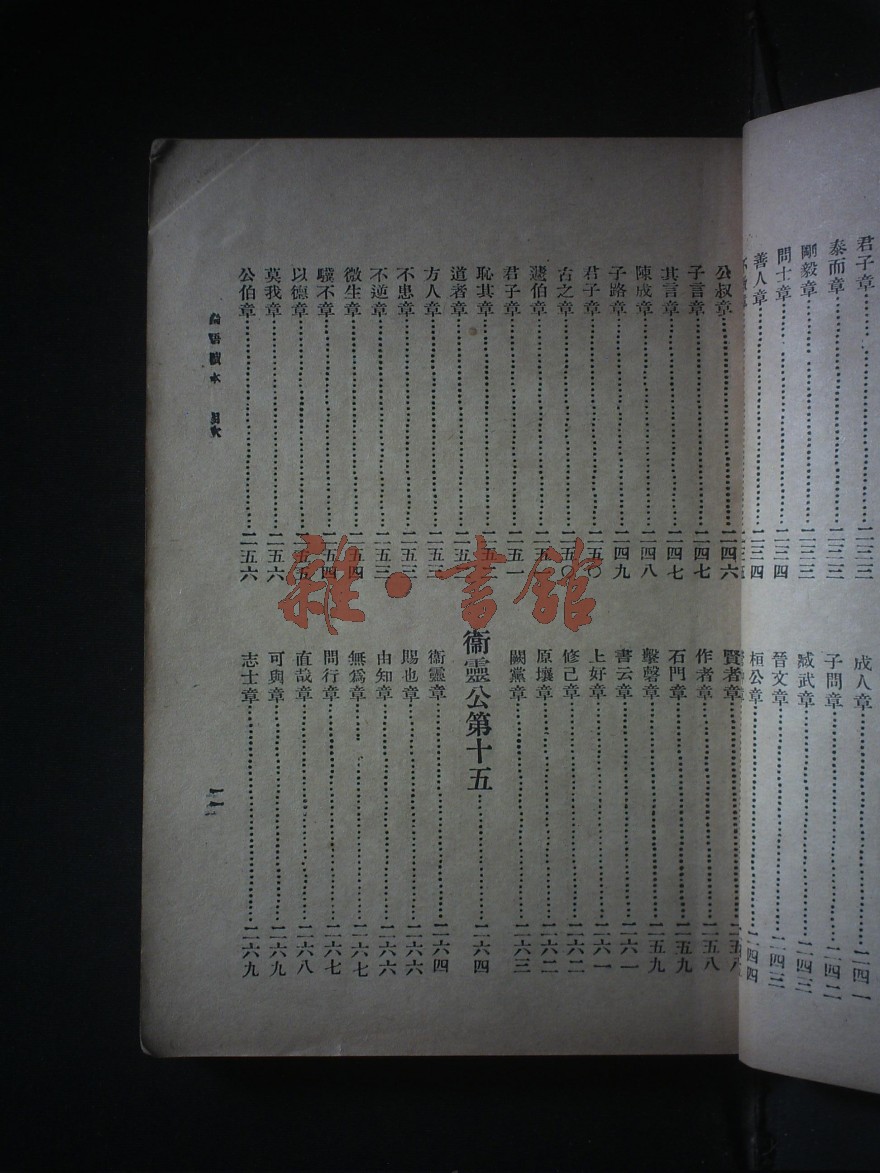 君子章……二三三
泰而章……二三三
剛毅章……二三三
問士章……二三四
善人章……二三四
成人章……二四一
子問章……二四二
臧武章……二四三
晉文章……二四三
桓公章……二四四
公叔章……二四六
子言章……二四七
其言章……二四七
陳成章……二四八
子路章……二四九
君子章……二五〇
古之章……二五〇
蘧伯章……
君子章……二五一
恥其章……
道者章……
方人章……二五三
不患章……二五三
不逆章……二五三
微生章……二五四
驥不章……二五四
以德章……二五五
莫我章……二五六
公伯章……二五六
賢者章……二五八
作者章……二五八
石門章……二五九
擊磬章……二五九
書云章……二六一
上好章……二六一
修己章……二六二
原壤章……二六二
闕黨章……二六三
衞靈公第十五……二六四
衞靈章……二六四
賜也章……二六六
由知章……二六六
無爲章……二六七
問行章……二六七
直哉章……二六八
可與章……二六九
志士章……二六九
論語讀本 目次
雜·書館